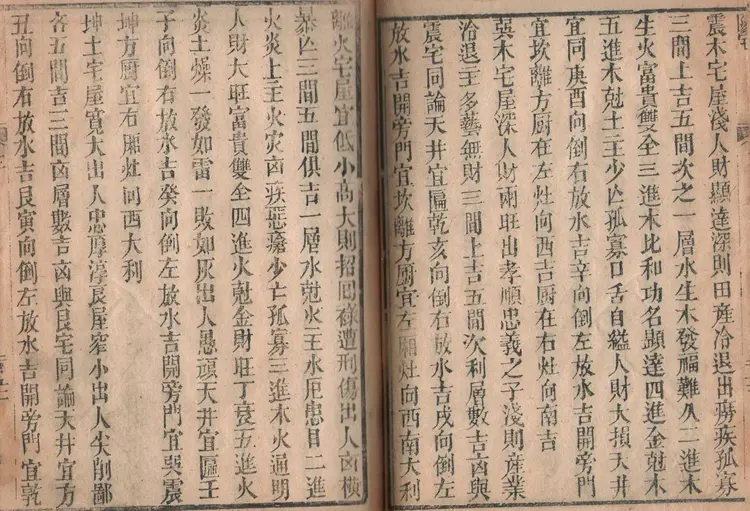 震木宅屋淺人財顯達深則田產冷退出癆疾孤寡
三間上吉五間次之一層水生木發福難久二進木
生火富貴雙全三進木比和功名顯達四進金尅木
五進木尅土主少亡孤寡口舌自縊人財大損天井
宜同庚酉向倒右放水吉辛向倒左放水吉開旁門
宜坎離方厨在左灶向西吉厨在右灶向南吉
巽木宅屋深人財兩旺出孝順忠義之子淺則産業
冷退主多藝無財三間上吉五間次利層數吉凶與
震宅同論天井宜匾乾亥向倒右放水吉戌向倒左
放水吉開旁門宜坎離方厨宜左厢灶向西南大利
離火宅屋宜低小高大則招回祿遭刑傷出人凶橫
暴凶三間五間俱吉一層水尅火主水厄患目二進
火炎上主火灾凶疾惡瘡少亡孤寡三進木火通明
人財大旺富貴雙全四進火尅金財旺丁衰五進火
炎土燥一發如雷一敗如灰出人愚頑天井宜匾壬
子向倒右放水吉癸向倒左放水吉開旁門宜巽震
坤方厨宜右厢灶向西大利
坤土宅屋寬大出人忠厚淳良屋窄小出人尖削鄙
吝五間吉三間凶層數吉凶與艮宅同論天井宜方
丑向倒右放水吉艮寅向倒左放水吉開旁門宜乾